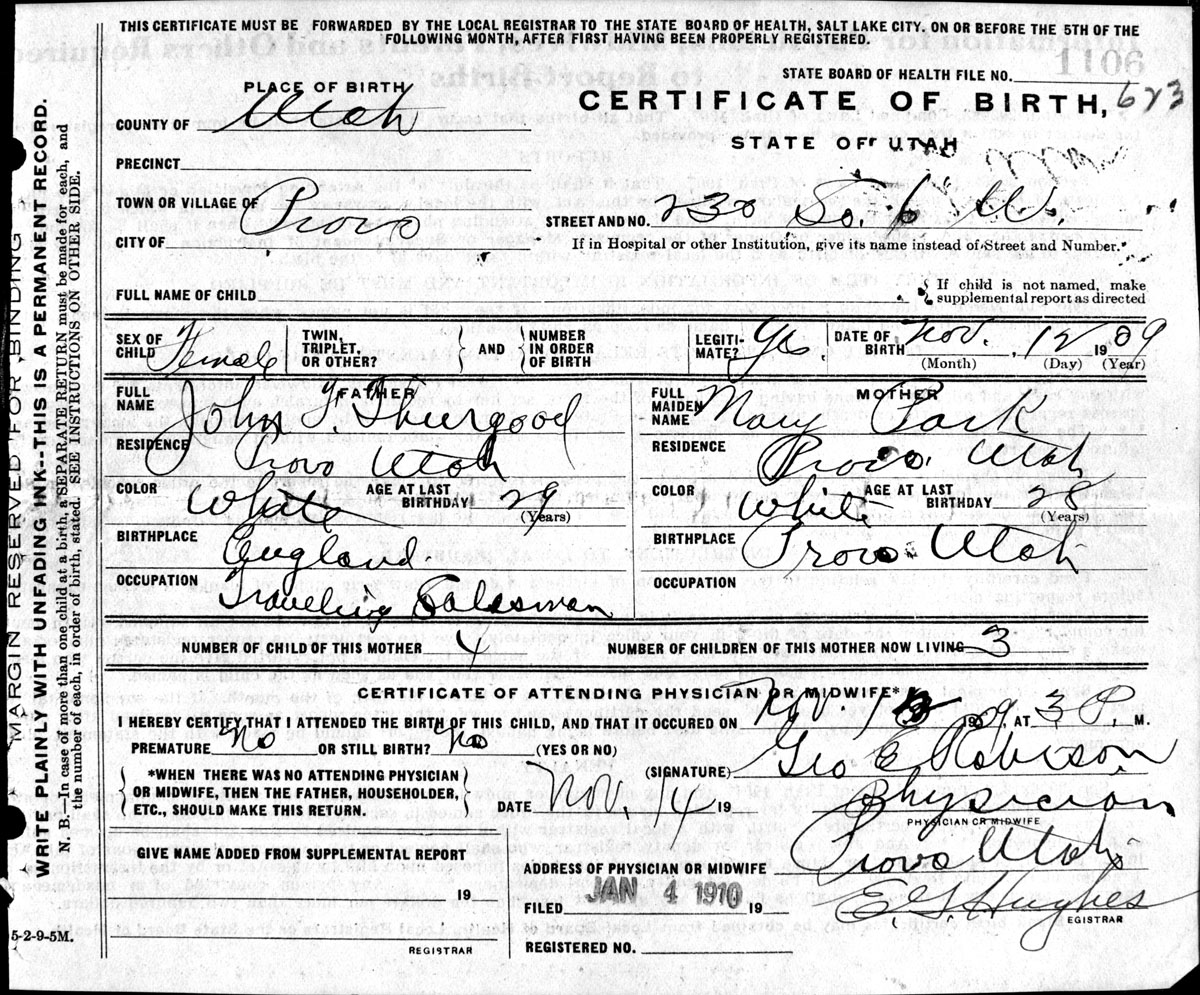 THIS CERTIFICATE MUST BE FORWARDED BY THE LOCAL REGISTRAR TO THE STATE BOARD OF HEALTH, SALT LAKE CITY, ON OR BEFORE THE 5TH OF THE
FOLLOWING MONTH, AFTER FIRST HAVING BEEN PROPERLY REGISTERED.
1106
STATE BOARD OF HEALTH FILE NO.
PLACE OF BIRTH
CERTIFICATE OF BIRTH, 623
COUNTY OF Utah
STATE OF UTAH
PRECINCT
TOWN OR VILLAGE OF Provo
STREET AND NO. 230 So. 6 W.
CITY OF
If in Hospital or other Institution, give its name instead of Street and Number.
FULL NAME OF CHILD
If child is not named, make
supplemental report as directed
SEX OF CHILD Female TWIN, TRIPLET, OR OTHER? AND NUMBER IN ORDER OF BIRTH LEGITI-MATE? Yes DATE OF BIRTH Nov. 12 1909
(Month) (Day) (Year)
FATHER
FULL NAME John F. Thurgood
RESIDENCE Provo Utah
COLOR White AGE AT LAST BIRTHDAY 29
(Years)
BIRTHPLACE England
OCCUPATION Traveling Salesman
MOTHER
FULL MAIDEN NAME Mary Park
RESIDENCE Provo. Utah
COLOR White AGE AT LAST BIRTHDAY 28
(Years)
BIRTHPLACE Provo Utah
OCCUPATION
NUMBER OF CHILD OF THIS MOTHER 4 NUMBER OF CHILDREN OF THIS MOTHER NOW LIVING 3
CERTIFICATE OF ATTENDING PHYSICIAN OR MIDWIFE*
I HEREBY CERTIFY THAT I ATTENDED THE BIRTH OF THIS CHILD, AND THAT IT OCCURED ON Nov. 12 1909, AT 3 P, M.
PREMATURE No OR STILL BIRTH? No (YES OR NO)
(SIGNATURE) Geo E Robison
*WHEN THERE WAS NO ATTENDING PHYSICIAN
OR MIDWIFE, THEN THE FATHER, HOUSEHOLDER,
ETC., SHOULD MAKE THIS RETURN.
DATE Nov. 14 19
Physician
PHYSICIAN OR MIDWIFE
GIVE NAME ADDED FROM SUPPLEMENTAL REPORT
19
REGISTRAR
ADDRESS OF PHYSICIAN OR MIDWIFE Provo Utah
FILED JAN 4 1910 19
E G Hughes
REGISTRAR
REGISTERED NO.
5-2-9-5M.
MARGIN RESERVED FOR BINDING
WRITE PLAINLY WITH UNFADING INK--THIS IS A PERMANENT RECORD.
N. B.—In case of more than one child at a birth, a SEPARATE RETURN must be made for each, and
the number of each, in order of birth, stated. SEE INSTRUCTIONS ON OTHER SIDE.